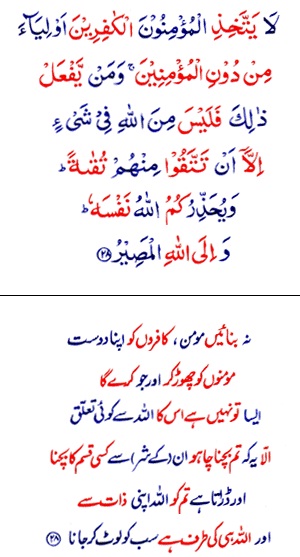 لَا يَتَّخِذِ الْمُؤْمِنُوْنَ الْكٰفِرِيْنَ اَوْلِيَآءَ
مِنْ دُوْنِ الْمُؤْمِنِيْنَ ۚ وَمَنْ يَّفْعَلْ
ذٰلِكَ فَلَيْسَ مِنَ اللّٰهِ فِيْ شَيْءٍ
اِلَّاۤ اَنْ تَتَّقُوْا مِنْهُمْ تُقٰىةً ؕ
وَيُحَذِّرُكُمُ اللّٰهُ نَفْسَهٗ ؕ
وَاِلَى اللّٰهِ الْمَصِيْرُ ﴿۲۸﴾
نہ بنائیں مومن، کافروں کو اپنا دوست
مومنوں کو چھوڑ کر اور جو کرے گا
ایسا تو نہیں ہے اس کا اللہ سے کوئی تعلّق
الّا یہ کہ تم بچنا چاہو ان (کے شر) سے کسی قسم کا بچنا
اور ڈراتا ہے تم کو اللہ اپنی ذات سے
اور اللہ ہی کی طرف ہے سب کو لوٹ کر جانا ﴿۲۸﴾